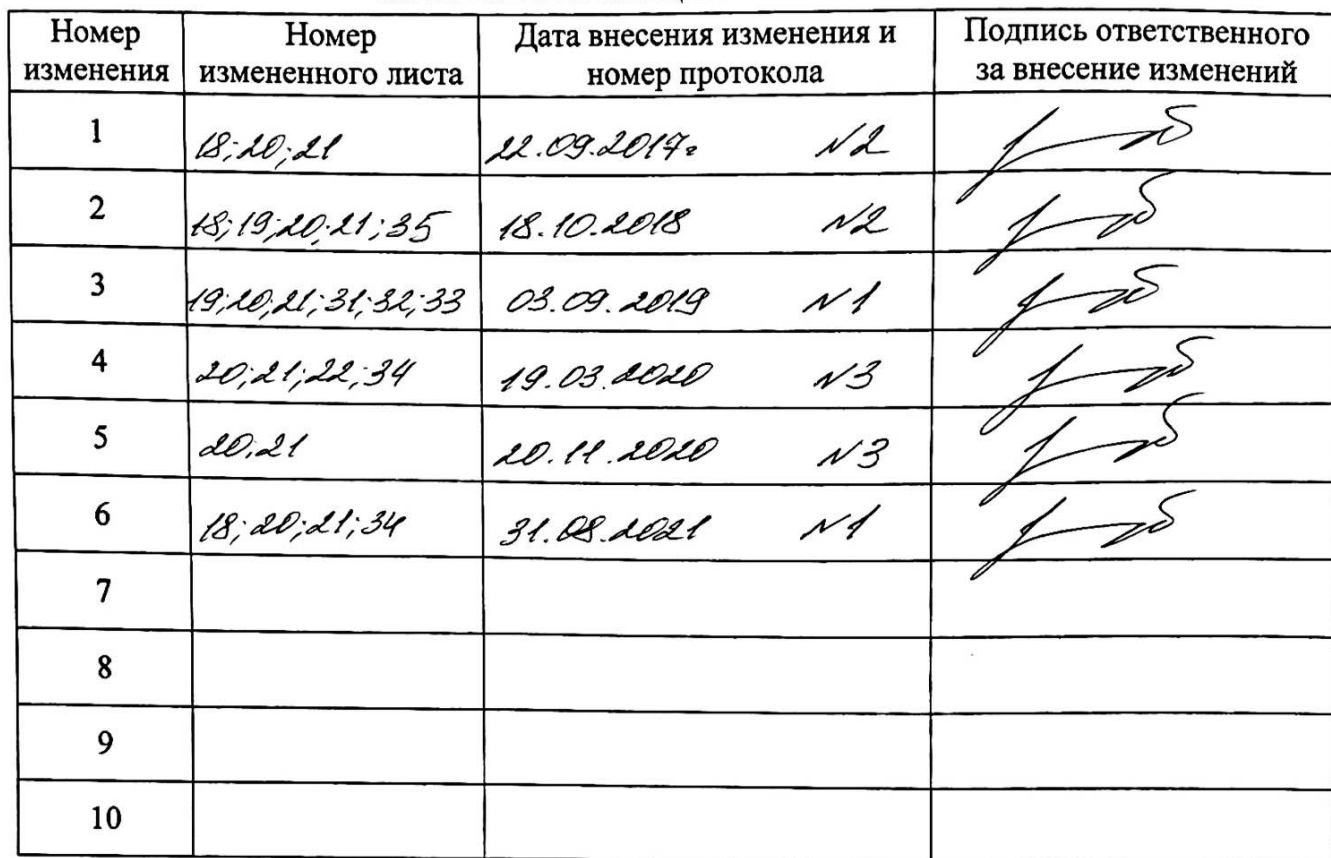 Номер изменения Номер измененного листа Дата внесения изменения и номер протокола Подпись ответственного за внесение изменений
1 18;20;21 22.09.2017г N2
2 18;19;20;21;35 18.10.2018 N2
3 19;20;21;31;32;33 03.09.2019 N1
4 20;21;22;34 19.03.2020 N3
5 20;21 20.11.2020 N3
6 18;20;21;34 31.08.2021 N1
7
8
9
10